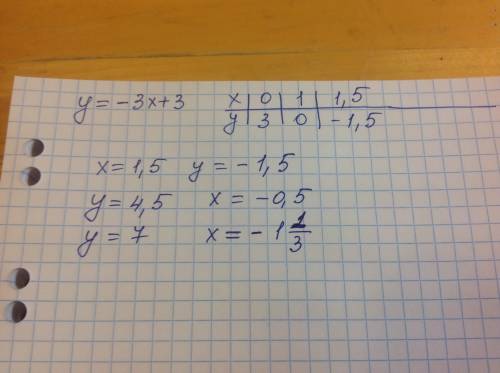 y = -3x+3 x | 0 | 1 | 1,5
y | 3 | 0 | -1,5
x = 1,5 y = -1,5
y = 4,5 x = -0,5
y = 7 x = -1 1/3